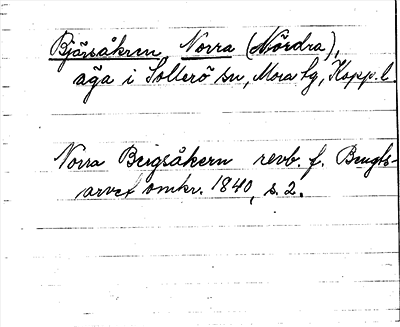 Bjärsåkren Norra (Nördra),
äga i Sollerö sn, Mora tg, Kopp. l.
Norra Beigsåkern revb. f. Bengts-
arvet omkr. 1840, s. 2.